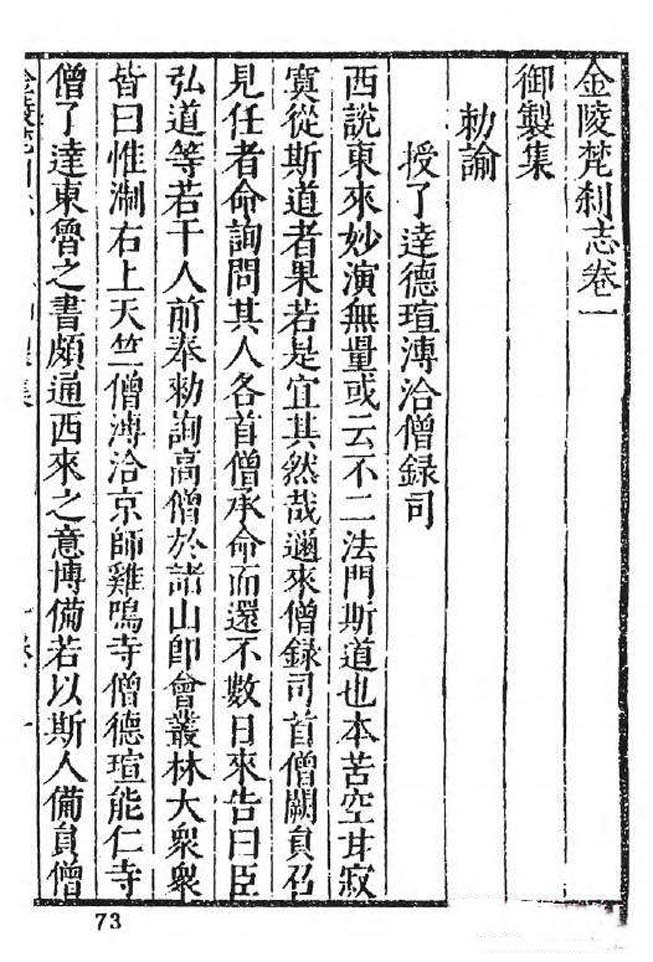 金陵梵刹志卷一
御製集
勅諭
授了達德瑄溥洽僧録司
西說東來妙演無量或云不二法門斯道也本苦空甘寂
寞從斯道者果若是宜其然哉邇來僧録司首僧闕員召
見任者命詢問其人各首僧承命而還不數日來告曰臣
弘道等若干人前奉勅詢高僧於諸山即會叢林大衆衆
皆曰惟淛右上天竺僧溥洽京師雞鳴寺僧德瑄能仁寺
僧了達東魯之書頗通西來之意博備若以斯人備員僧
73